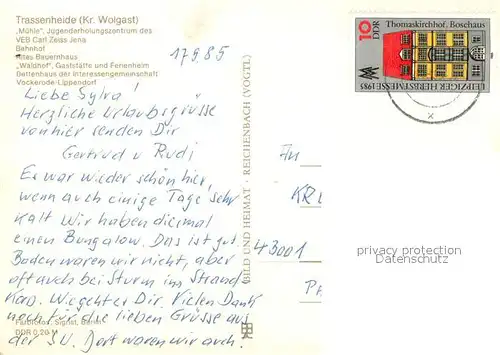 Trassenheide (Kr. Wolgast)
„Mühle", Jugenderholungszentrum des
VEB Carl Zeiss Jena
Bahnhof
Altes Bauernhaus
„Waldhof", Gaststätte und Ferienheim
Bettenhaus der Interessengemeinschaft
Vockerode-Lippendorf
17.9.85
Liebe Sylva!
Herzliche Urlaubsgrüsse
von hier senden Dir
Gertrud u Rudi
Es war wieder schön hier,
wenn auch einige Tage sehr
kalt Wir haben diesmal
einen Bungalow. Das ist gut
Baden waren wir nicht, aber
oft auch bei Sturm im Strand
Korb. Wie geht es Dir. Vielen Dank
noch für die lieben Grüsse aus
der SU. Dort waren wir auch.
Farbfotos: Signst, Berlin
DDR 0,20 M
BILD UND HEIMAT · REICHENBACH (VOGTL)
10
DDR
Thomaskirchhof, Boschaus
LEIPZIGER HERBSTMESSE 1985
MM
An
43001
privacy protection
Datenschutz